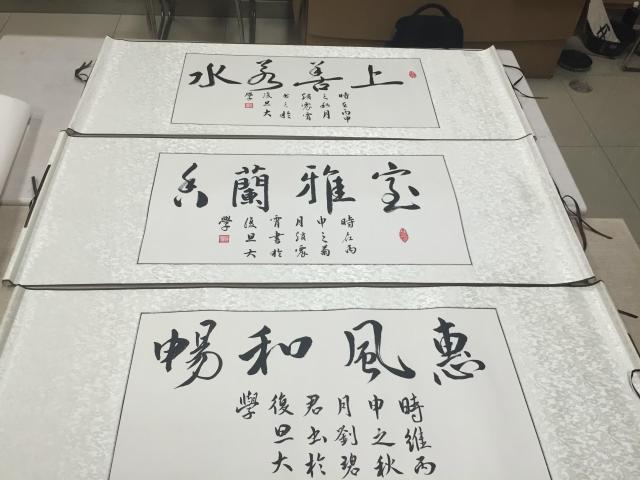 上善若水
時至丙申
之秋月
震霄
書於
復旦大
學
室雅蘭香
時在丙
申之菊
月
震
霄書於
復旦大
學
惠風和暢
時維丙
申之秋
月劉碧
君書於
復旦大
學